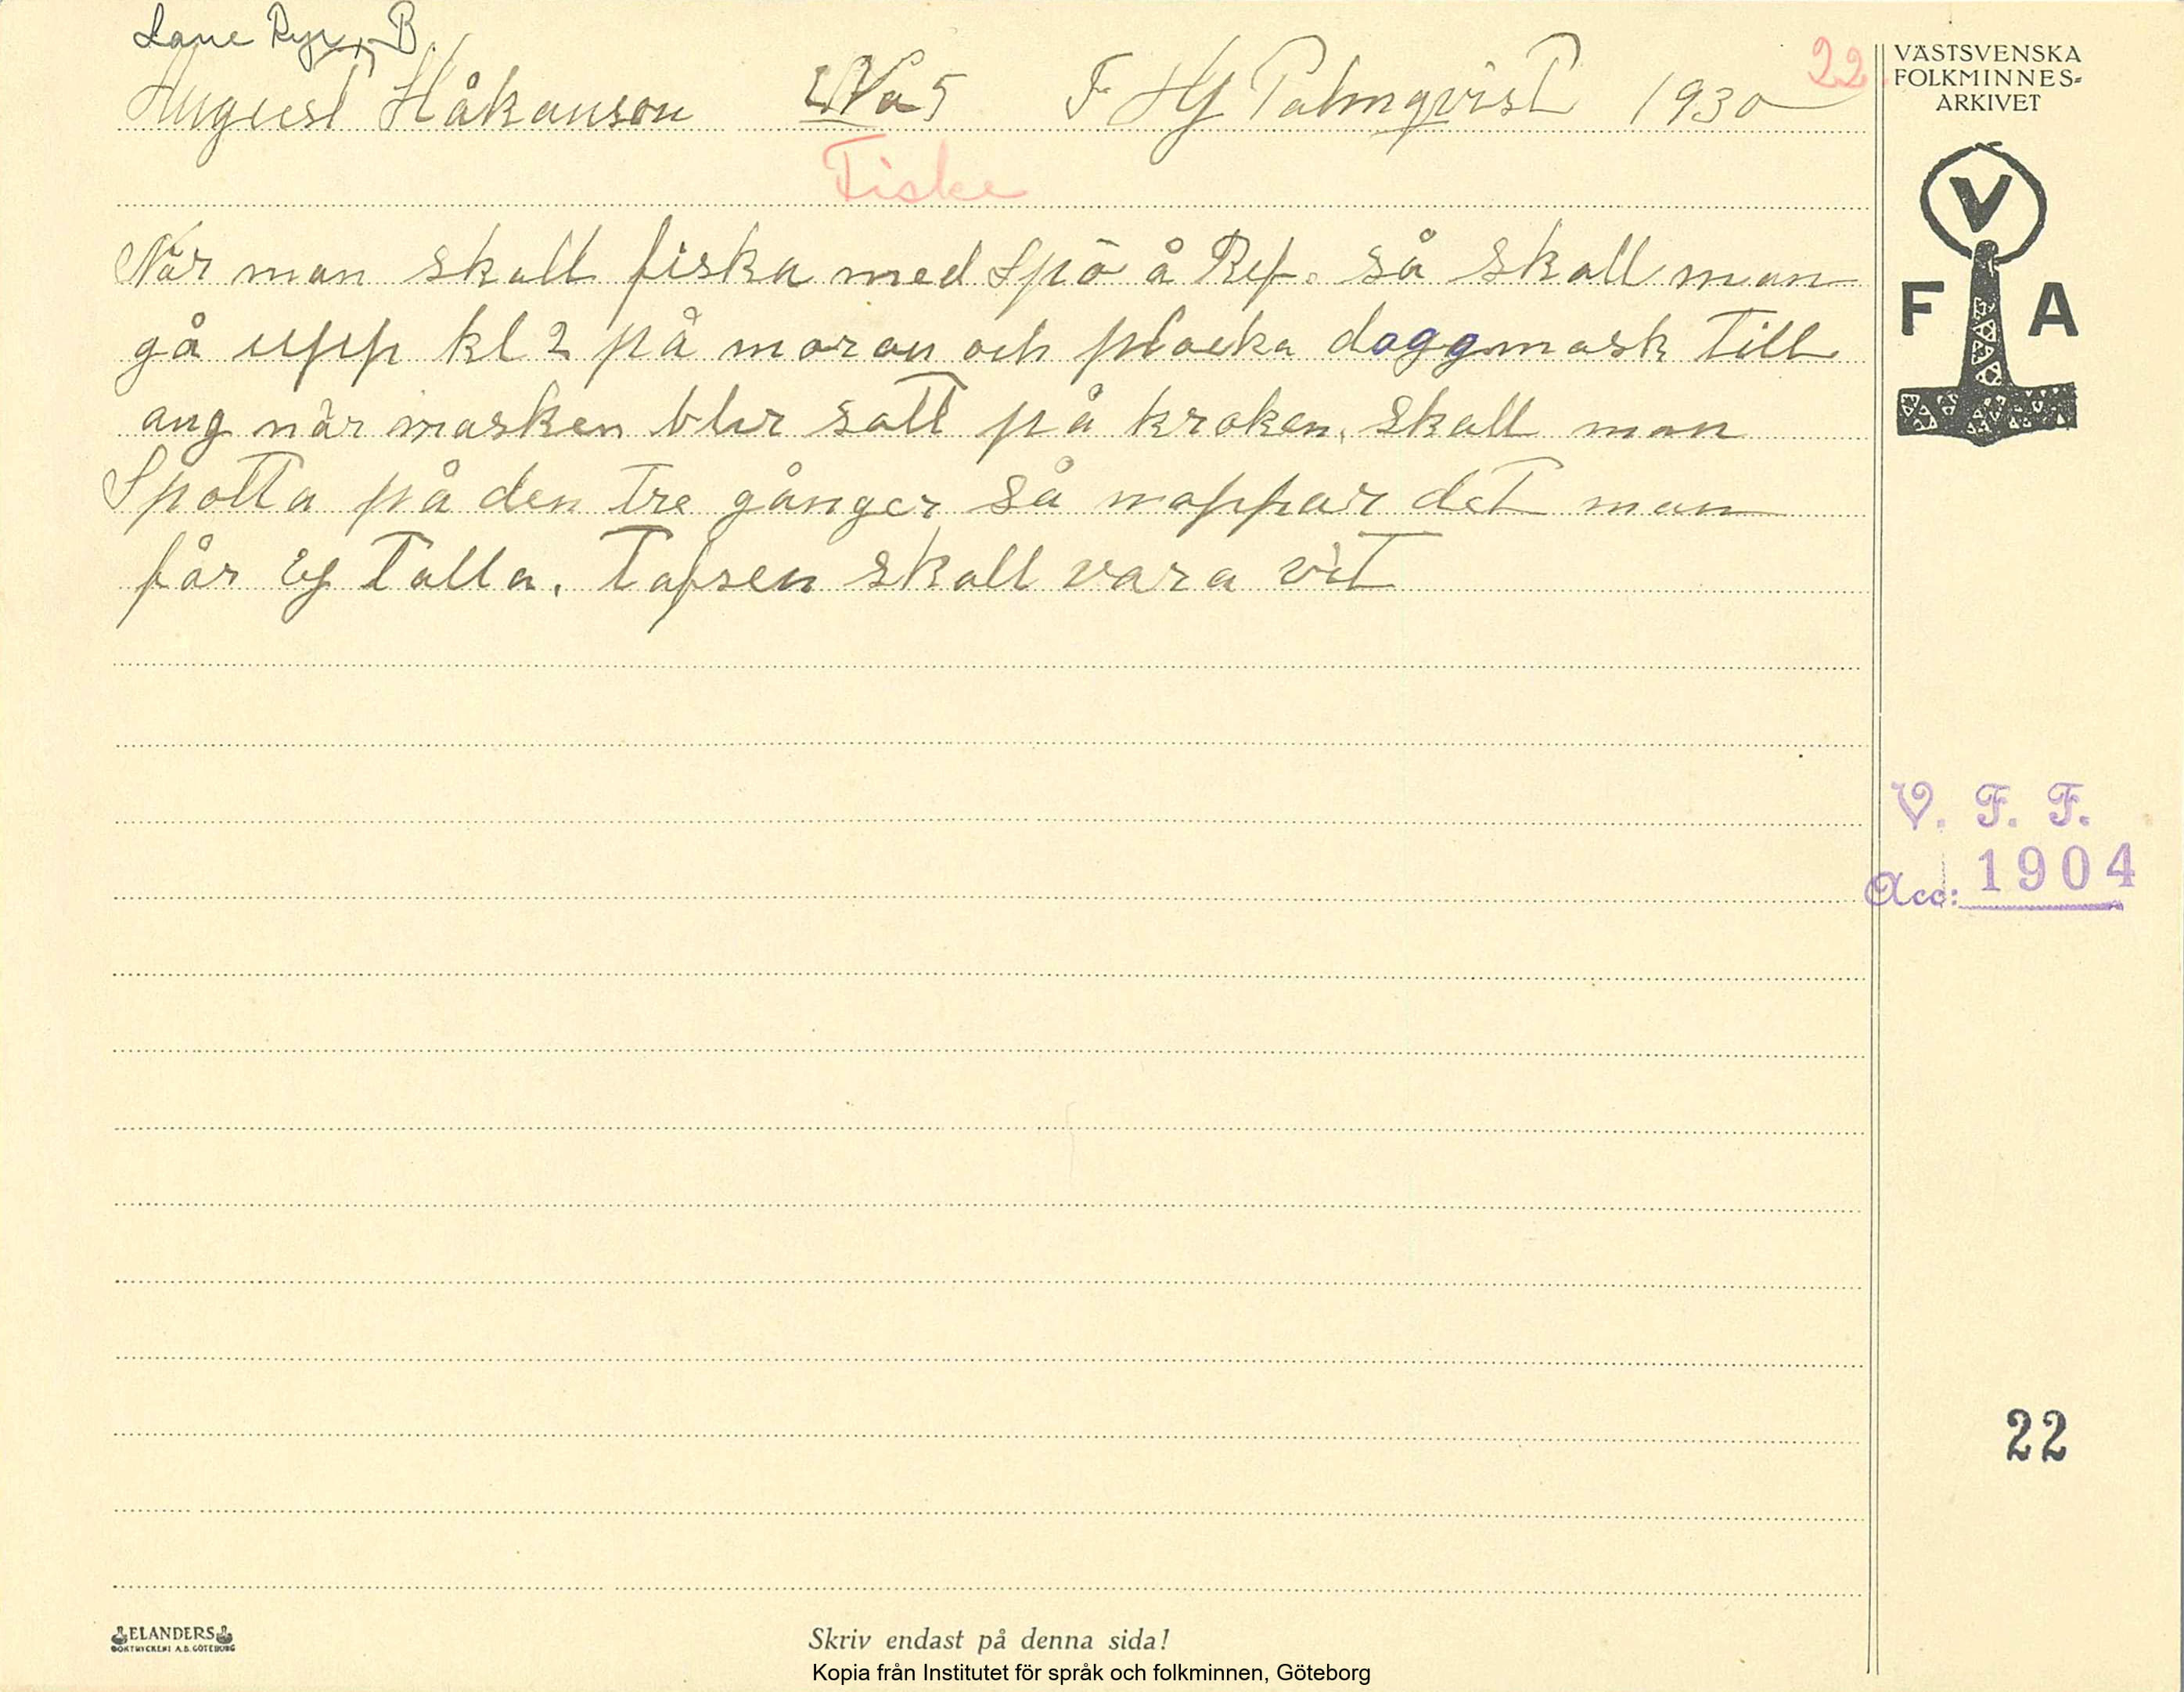 Lane Ryr, B.
August Håkanson No 5 F Hj Palmqvist 1930
22.
Fiske
När man skall fiska med Spö å Ref. så skall man
gå upp kl 2 på moron och plocka doggmask till
ang när masken blir satt på kroken, skall man
Spotta på den tre gånger så nappar det man
får Ej Talla. Tafsen skall vara vit
VÄSTSVENSKA
FOLKMINNES-
ARKIVET
V
F A
V. F. F.
Acc: 1904
22
ELANDERS
BOKTRYCKERI A.B. GÖTEBORG
Skriv endast på denna sida!
Kopia från Institutet för språk och folkminnen, Göteborg